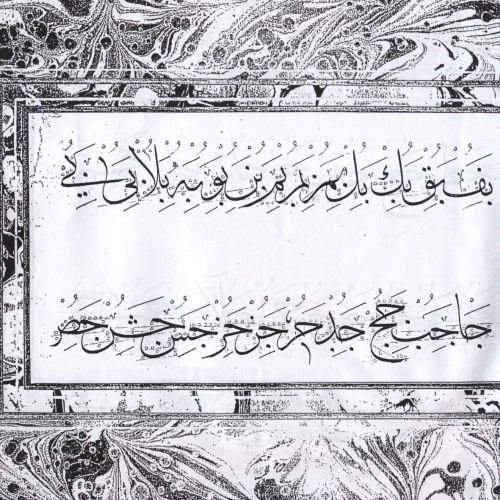 بف بق بك بل بم بم بم بن بو به بلا بى
جا جب جج جد جر جر جس جش جص